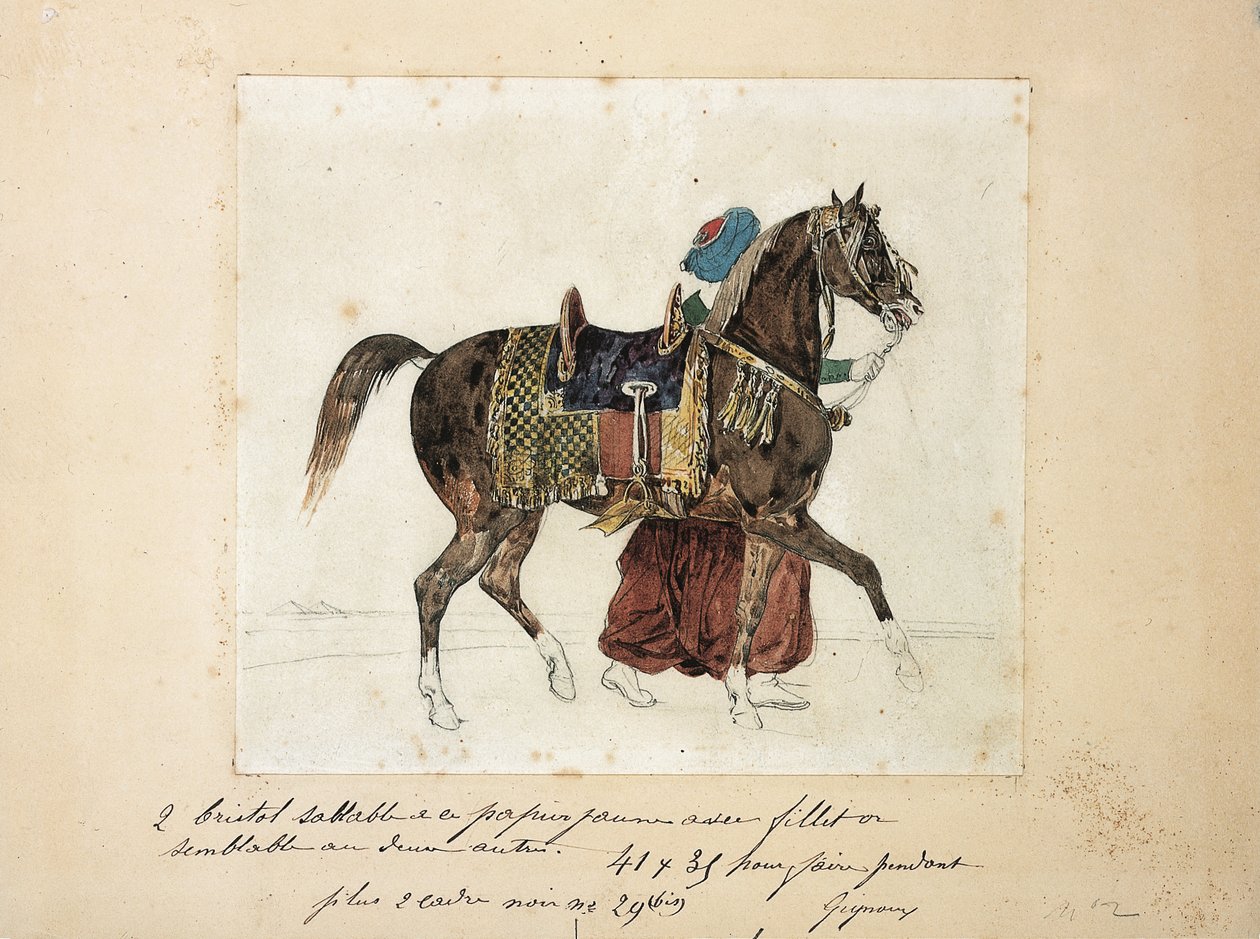 2 bristol sablable a ce papier jaune avec fillet or
semblable au deux autre.
41 x 35 pour faire pendant
plus 2 cadre noir no 29 (bis)
Gignoux
No 2